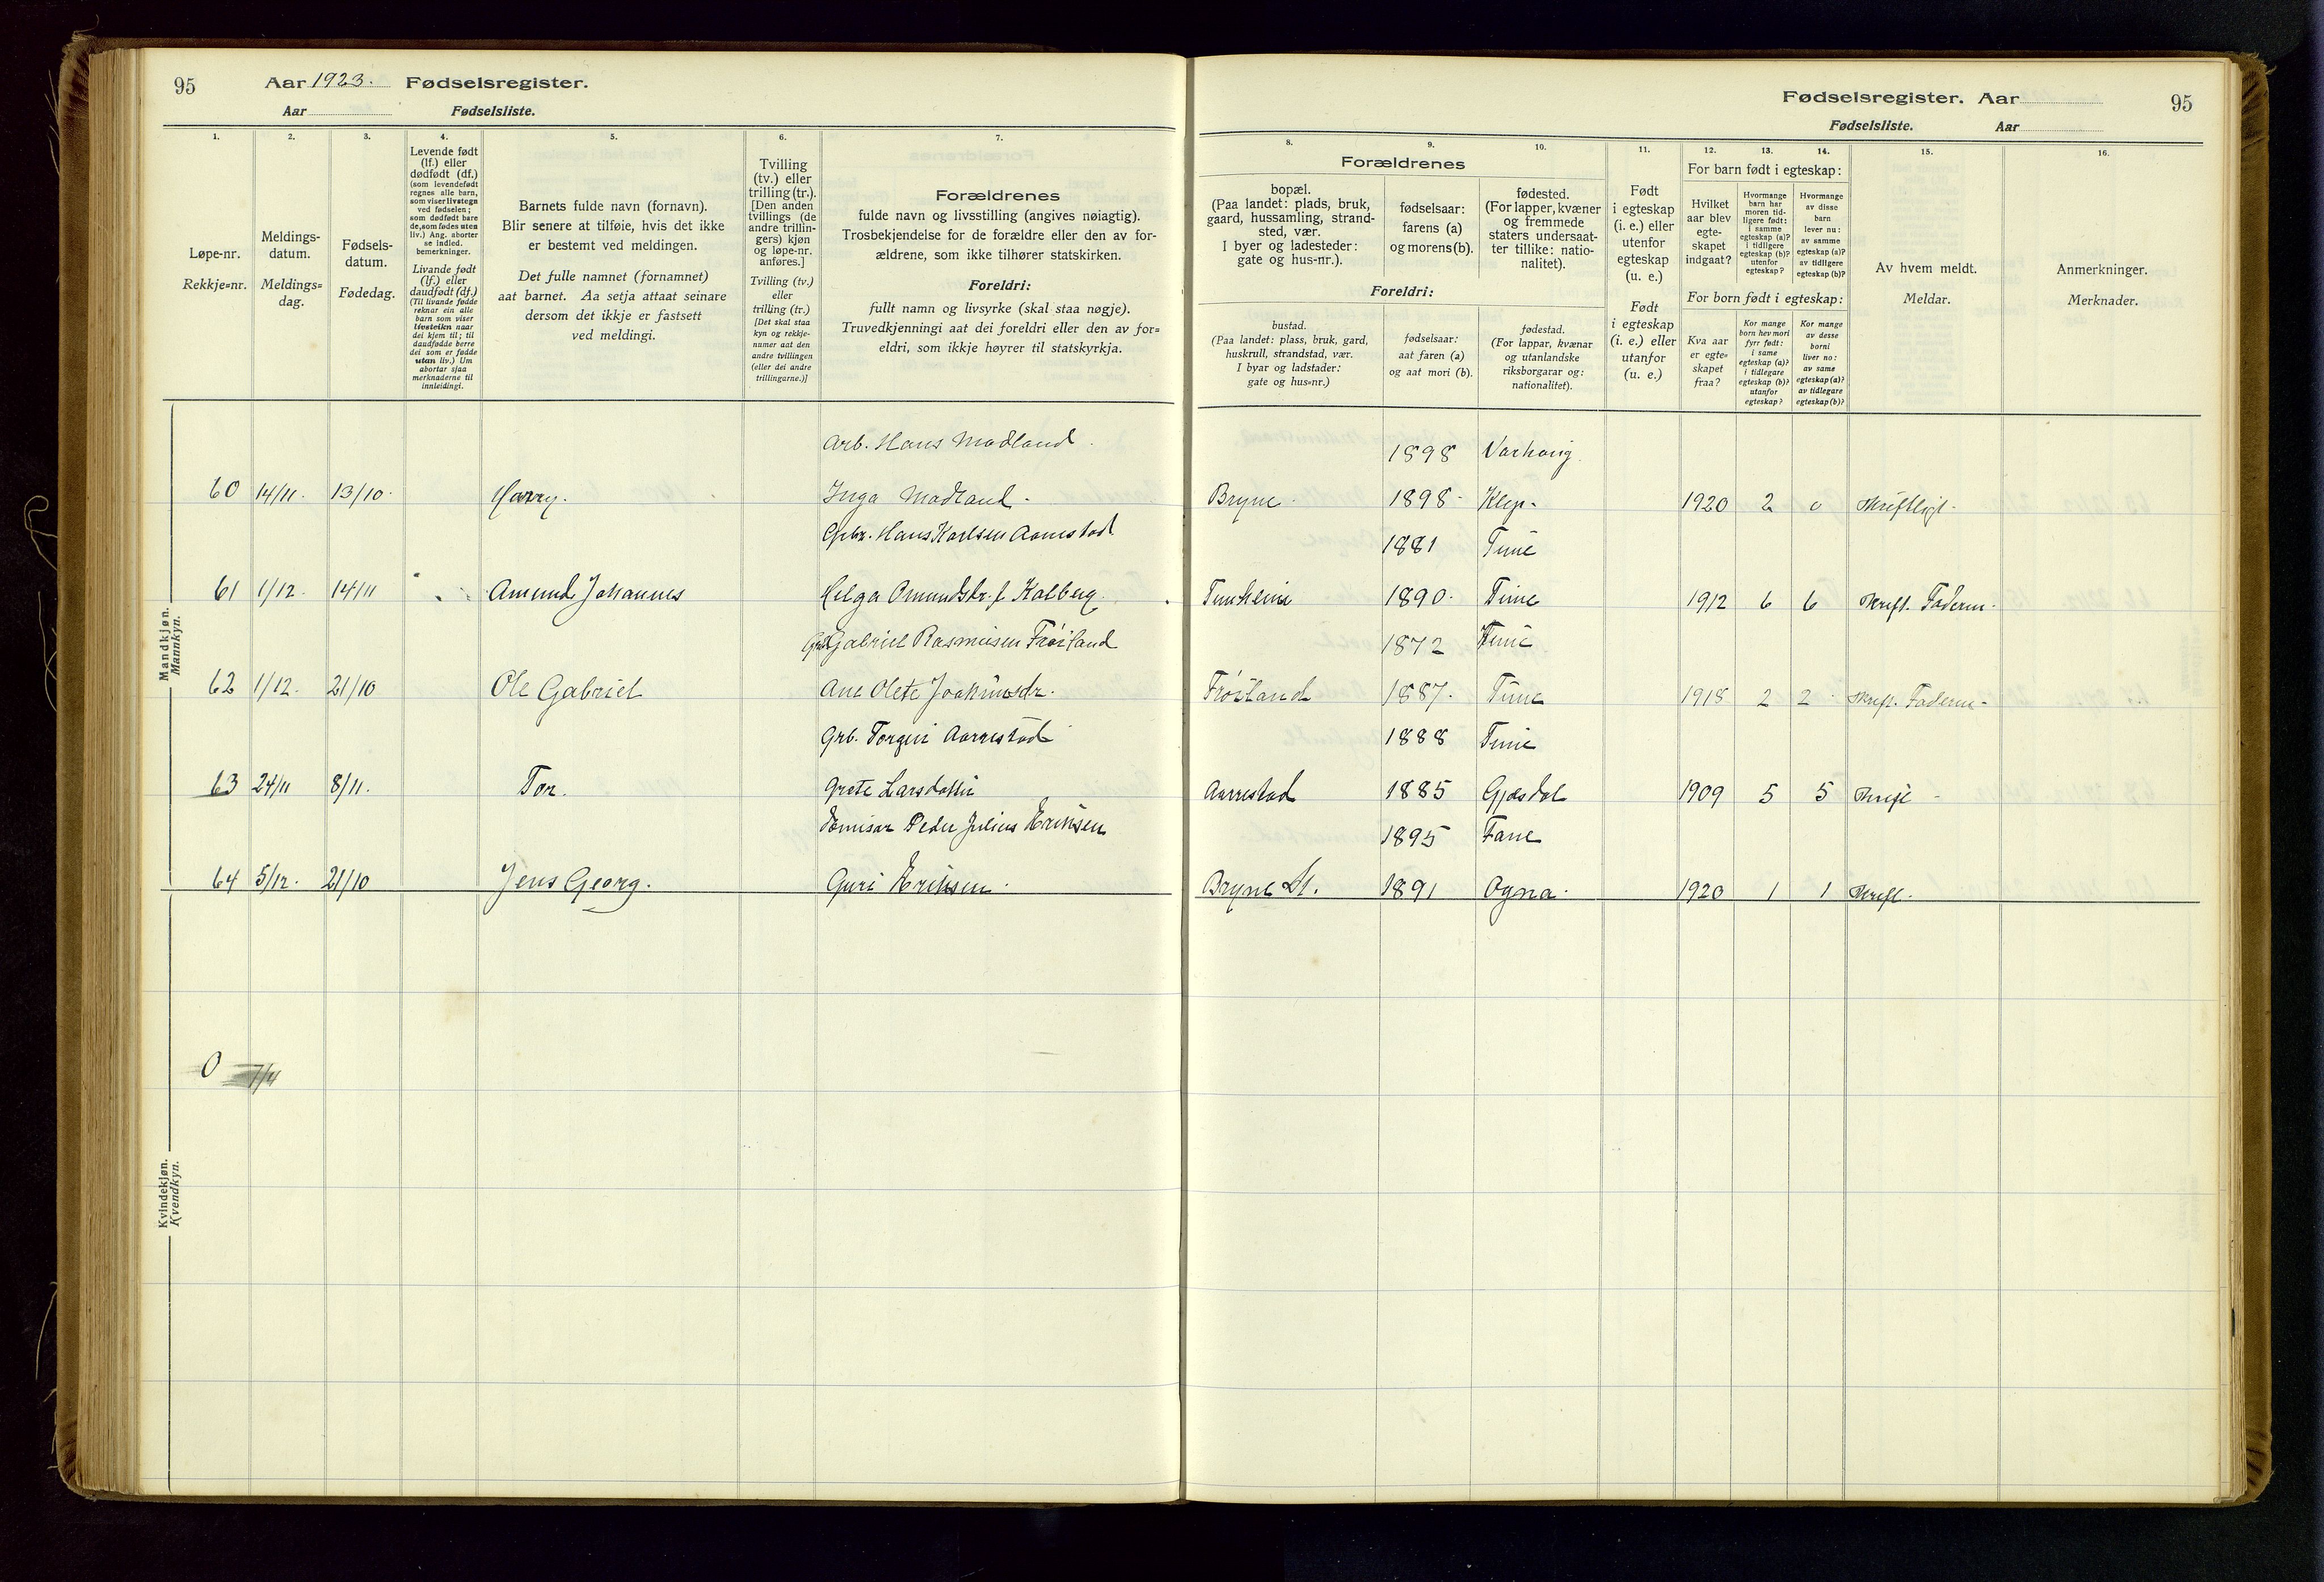 95
Aar 1923. Fødselsregister.
Aar Fødselsliste.
1.
Løpe-nr.
Rekkje=nr.
2.
Meldings-
datum.
Meldings=
dag.
3.
Fødsels-
datum.
Fødedag.
4.
Levende født
(lf.) eller
dødfødt (df.)
(som levendefødt
regnes alle barn,
som viser livstegn
ved fødselen;
som dødfødt bare
de, som fødes uten
liv.) Ang. aborter
se indled.
bemerkninger.
Livande født
(lf.) eller
daudfødt (df.)
(Til livande fødde
reknar ein alle
barn som viser
livsteikn naar
dei kjem til; til
daudfødde berre
dei som er fødde
utan liv.) Um
abortar sjaa
merknaderne til
innleidingi.
5.
Barnets fulde navn (fornavn).
Blir senere at tilføie, hvis det ikke
er bestemt ved meldingen.
Det fulle namnet (fornamnet)
aat barnet. Aa setja attaat seinare
dersom det ikkje er fastsett
ved meldingi.
6.
Tvilling
(tv.) eller
trilling (tr.).
[Den anden
tvillings (de
andre trillin-
gers) kjøn
og løpe-nr.
anføres.]
Tvilling (tv.)
eller
trilling (tr.)
[Det skal staa
kyn og rekkje-
numer aat den
andre tvillingen
(eller dei andre
trillingarne.)]
7.
Forældrenes
fulde navn og livsstilling (angives nøiagtig).
Trosbekjendelse for de forældre eller den av for-
ældrene, som ikke tilhører statskirken.
Foreldri:
fullt namn og livsyrke (skal staa nøgje).
Truvedkjenningi aat dei foreldri eller den av for=
eldri, som ikkje høyrer til statskyrkja.
Mandkjøn.
Mannkyn.
Arb. Hans Madland.
60 14/11. 13/10. Harry. Inga Madland.
Gbr. Hans Karlsen Aanestad
61 1/12. 14/11 Amund Johannes Helga Omundsdr. f. Kalberg.
Gabriel Rasmussen Frøiland
62 1/12. 21/10 Ole Gabriel Ane Olete Joakimsdr.
Grb. Torger Aarrestad
63 24/11 8/11. Tor. Grete Larsdatter
Peder Julius Eriksen
64 5/12. 21/10 Jens Georg. Guri Eriksen.
0 7/4
Kvindekjøn.
Kvendkyn.
Fødselsregister. Aar
95
Fødselsliste. Aar
Forældrenes
8.
bopæl.
(Paa landet: plads, bruk,
gaard, hussamling, strand-
sted, vær.
I byer og ladesteder:
gate og hus-nr.).
9.
fødselsaar:
farens (a)
og morens(b).
10.
fødested.
(For lapper, kvæner
og fremmede
staters undersaat-
ter tillike: natio-
nalitet).
Foreldri:
bustad.
(Paa landet: plass, bruk, gard,
huskrull, strandstad, vær.
I byar og ladstader:
gate og hus=nr.)
fødselsaar:
aat faren (a)
og aat mori (b).
fødestad.
(For lappar, kvænar
og utanlandske
riksborgarar og:
nationalitet).
11.
Født
i egteskap
(i. e.) eller
utenfor
egteskap
(u. e.)
Født
i egteskap
(i. e.) eller
utanfor
(u. e.)
12. 13. 14.
For barn født i egteskap:
Hvilket
aar blev
egte-
skapet
indgaat?
Hvormange
barn har
moren tid-
ligere født:
i samme
egteskap (a)?
i tidligere
egteskap (b)?
utenfor
egteskap?
Hvormange
av disse
barn
lever nu:
av samme
egteskap (a)?
av tidligere
egteskap (b)?
For born født i egteskap:
Kva aar
er egte=
skapet
fraa?
Kor mange
born hev mori
fyrr født:
i same
egteskap (a)?
i tidlegare
egteskap (b)?
utanfor
egteskap?
Kor mange
av desse
borni
liver no:
av same
egteskap (a)?
av tidlegare
egteskap (b)?
15.
Av hvem meldt.
Meldar.
16.
Anmerkninger.
Merknader.
1898 Varhaug.
Bryne. 1898. Klep. 1920 2 0 Skriftligt.
1881 Time
Tunheim 1890. Time 1912 6 6 Skrift. Faderen.
1872 Time
Frøiland 1887. Time 1918 2 2 Skrift. Faderen.
1888 Time
Aarrestad 1885 Gjesdal 1909 5 5 Skrift
1895 Fane
Bryne St. 1891 Ogna. 1920 1 1 Skrift.